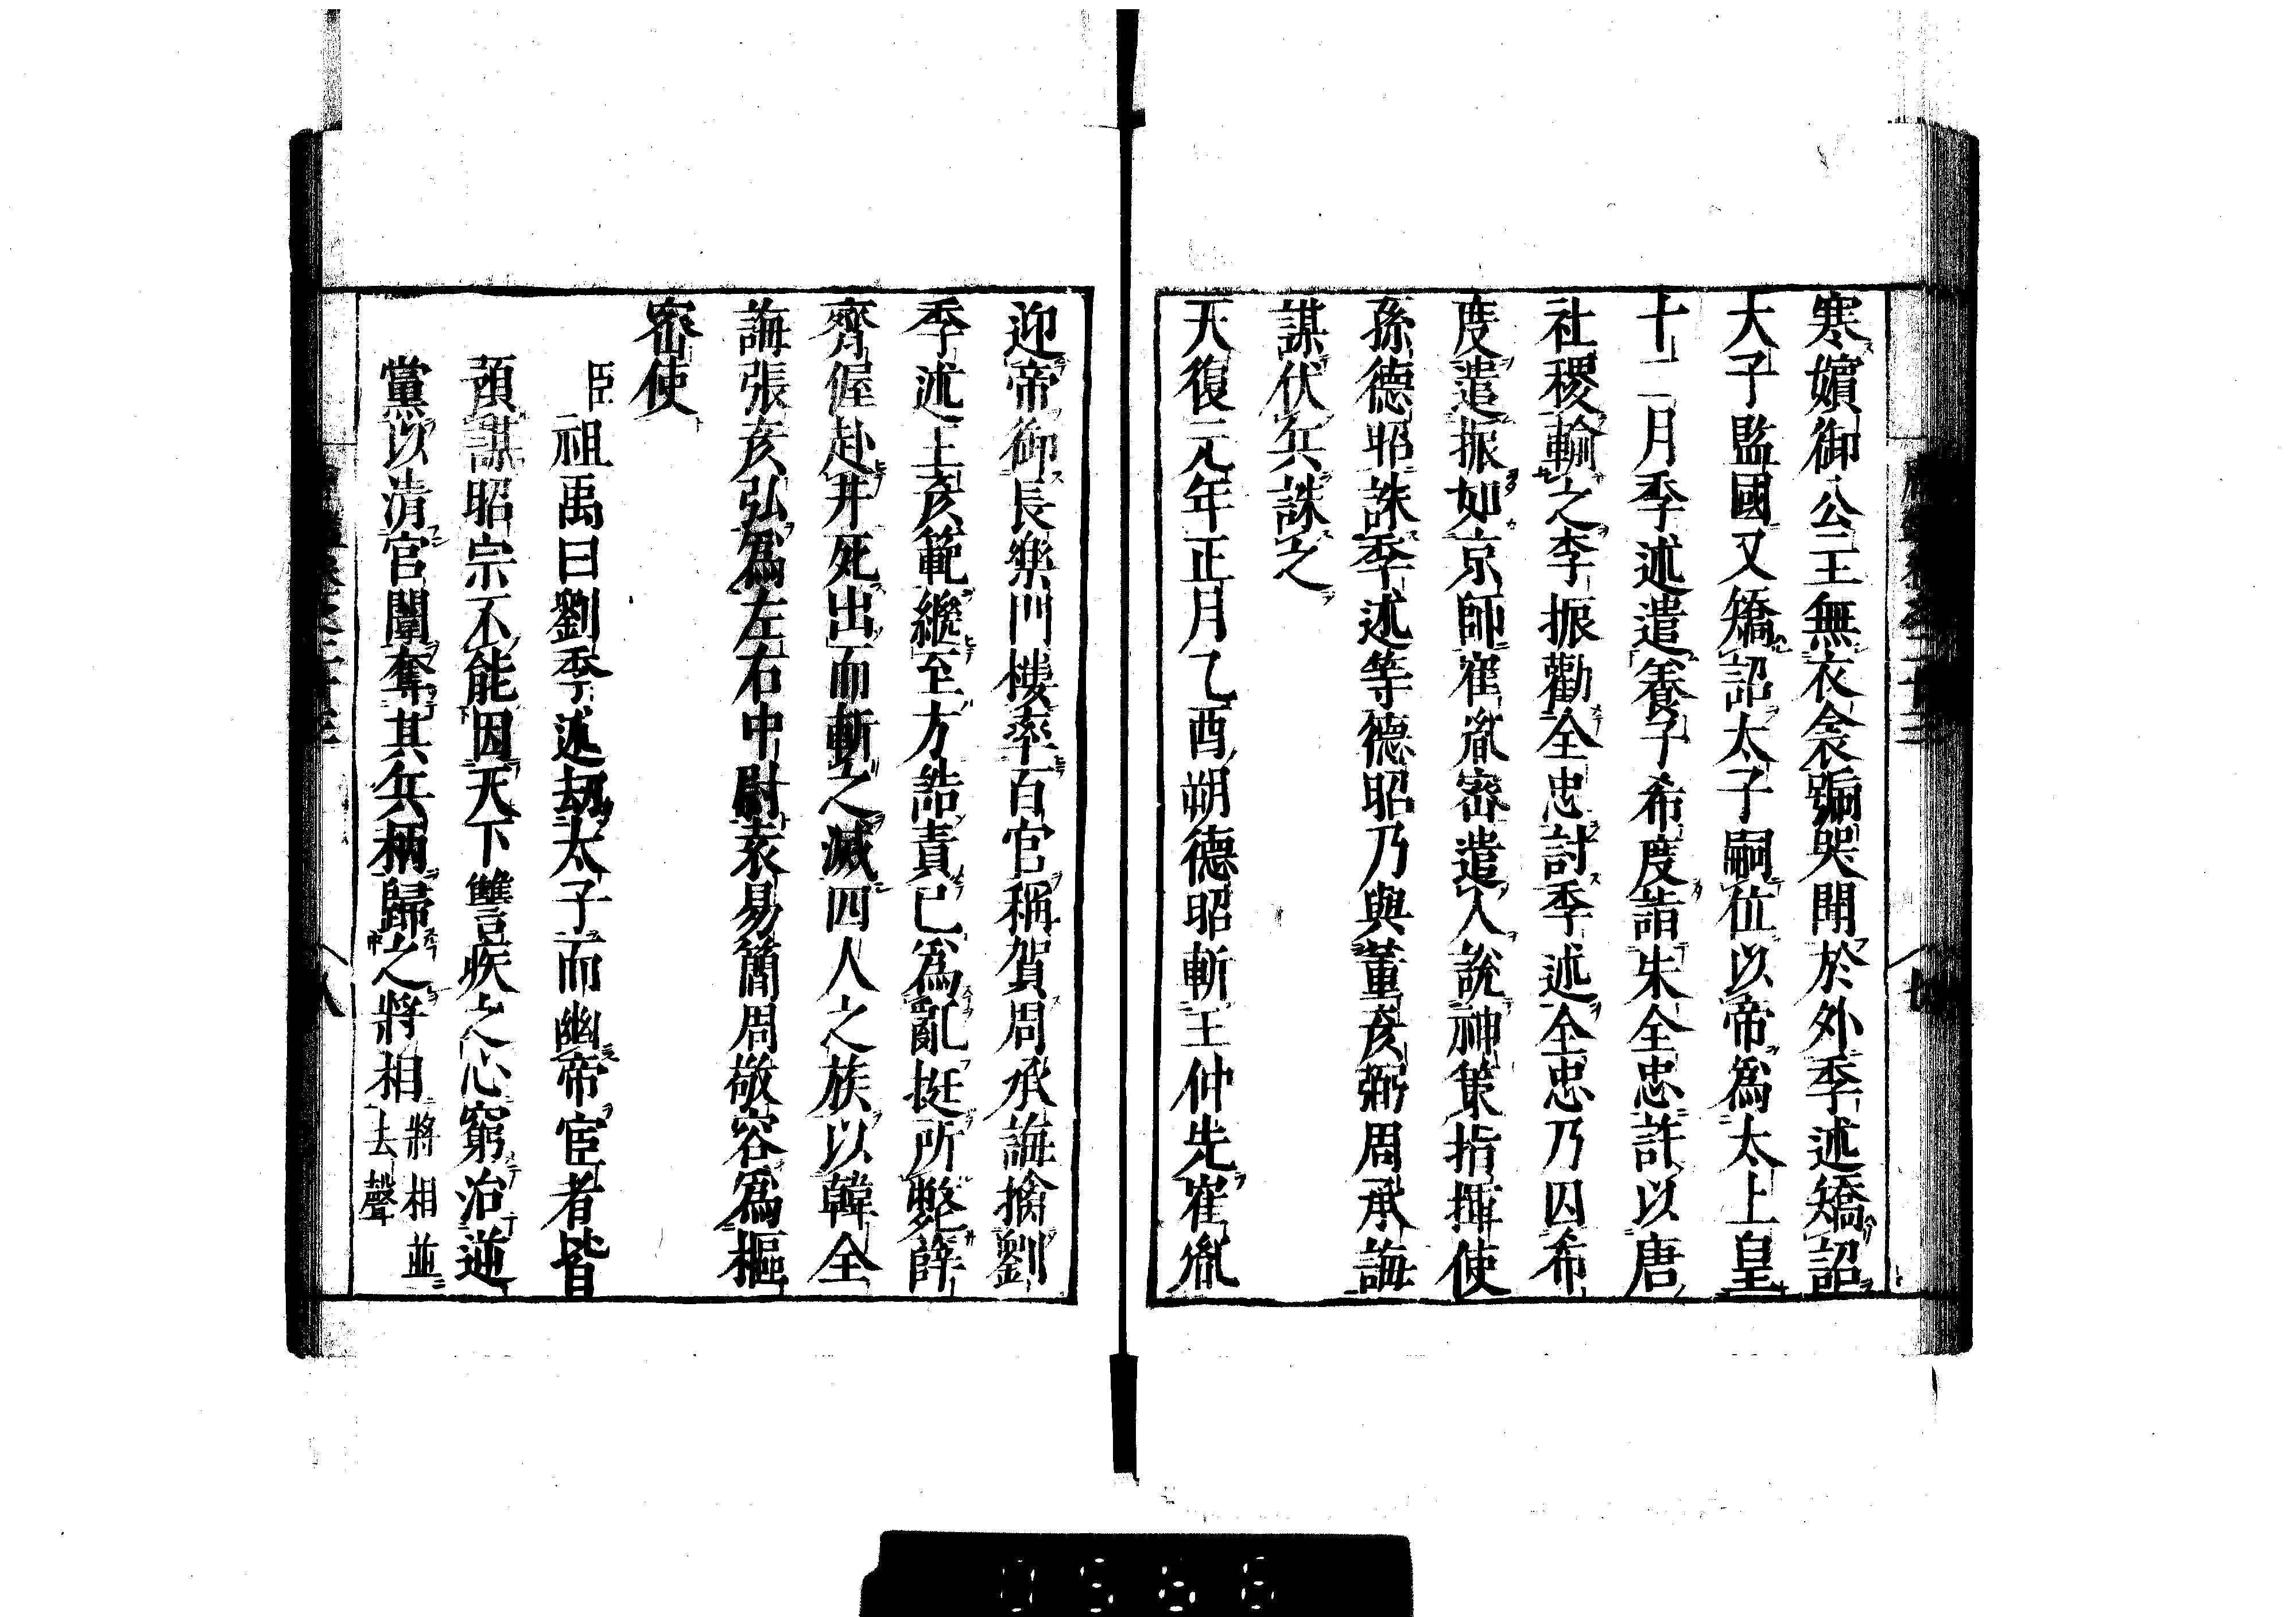 寒嬪御公主無衣衾號哭聞於外季述矯詔
大子監國又矯詔太子嗣位以帝為太上皇
十一月季述遣養子希度詣朱全忠許以唐
社稷輸之李振勸全忠討季述全忠乃囚希
度遣振如京師崔胤密遣人說神策指揮使
孫德昭誅季述等德昭乃與董彥弼周承誨
謀伏兵誅之
天復元年正月乙酉朔德昭斬王仲先崔胤
迎帝御長樂門樓率百官稱賀周承誨擒劉
季述王彥範纔至方詰責已為亂挺所斃薛
齊偓赴井死出而斬之滅四人之族以韓全
誨張彥弘為左右中尉袁易簡周敬容為樞
密使
臣祖禹曰劉季述劫太子而幽帝宦者皆
預謀昭宗不能因天下讐疾之心窮治逆
黨以清宮闈奪其兵柄歸之將相將相並去聲
八